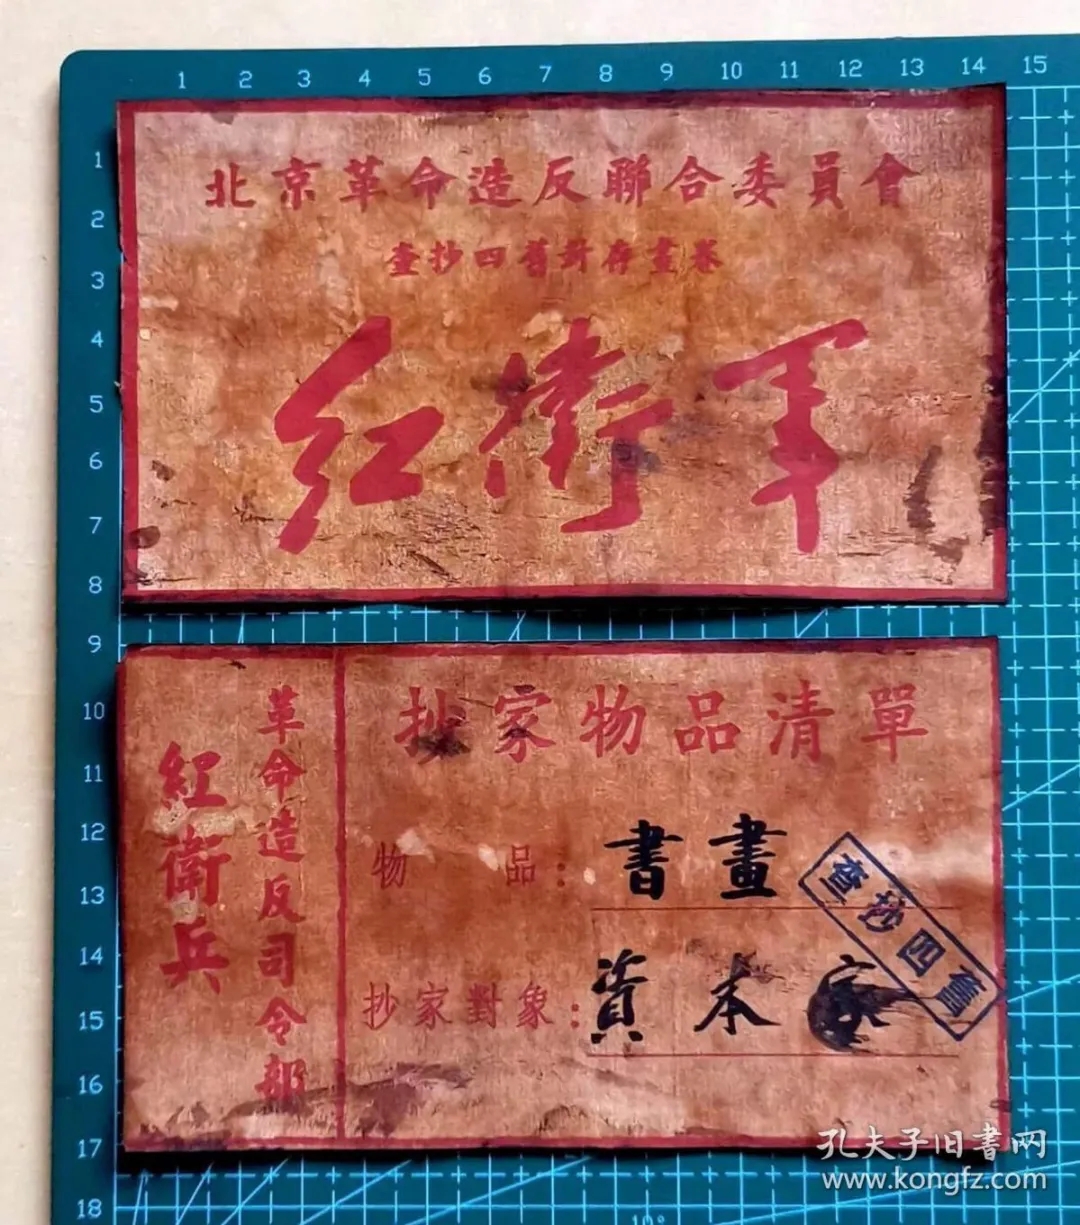 1 2 3 4 5 6 7 8 9 10 11 12 13 14 15
1
2
3
4
5
6
7
8
9
10
11
12
13
14
15
16
17
18
北京革命造反聯合委員會
查抄四舊封存畫卷
红衛军
抄家物品清單
紅衛兵
革命造反司令部
物品：書畫
抄家對象：資本家
查抄四舊
孔夫子旧書网
www.kongfz.com